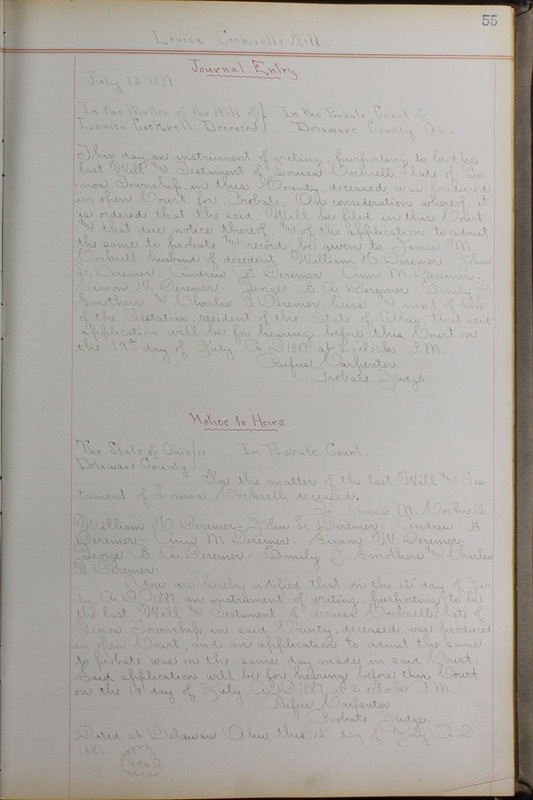 55
Louisa Cockrell's Will
Journal Entry
July 12 1887.
In the Matter of the Will of } In the Probate Court of
Louisa Cockrell, Deceased } Delaware County, Ohio
This day, an instrument of writing, purporting to be the
last Will and Testament of Louisa Cockrell, late of Ge-
noa Township, in this County, deceased, was produced
in open Court for Probate. On consideration whereof, it
is ordered that the said Will be filed in this Court
and that due notice thereof, and of the application to admit
the same to probate and record be given to James M.
Cockrell husband of decedent, William H. Deremer- John
L. Deremer- Andrew B Deremer- Ann M. Deremer-
Simon W. Deremer- George B. A. Deremer- Emily J.
Smothers and Charles Deremer, heirs and next of kin
of the Testatrix, resident of the State of Ohio, that said
application will be for hearing before this Court on
the 19th day of July A.D. 1887. at 2 oclock P.M.
Rufus Carpenter
Probate Judge
Notice to Heirs
The State of Ohio } ss In Probate Court
Delaware County
In the matter of the last Will and Tes-
tament of Louisa Cockrell, deceased.
To James M. Cockrell-
William H. Deremer- John L. Deremer- Andrew B
Deremer- Ann M. Deremer- Simon W. Deremer-
George B. A. Deremer- Emily J Smothers and Charles
Deremer:
You are hereby notified that on the 12" day of Ju-
ly, A.D. 1887 an instrument of writing, purporting to be
the last Will and Testament of Louisa Cockrell, late of
Genoa Township, in said County, deceased, was produced
in open Court, and an application to admit the same
to probate was on the same day made in said Court.
Said application will be for hearing before this Court
on the 19" day of July. A.D. 1887. at 2 oclock P.M.
Rufus Carpenter
Probate Judge.
Dated at Delaware Ohio, this 12" day of July A.D.
1887.
Seal